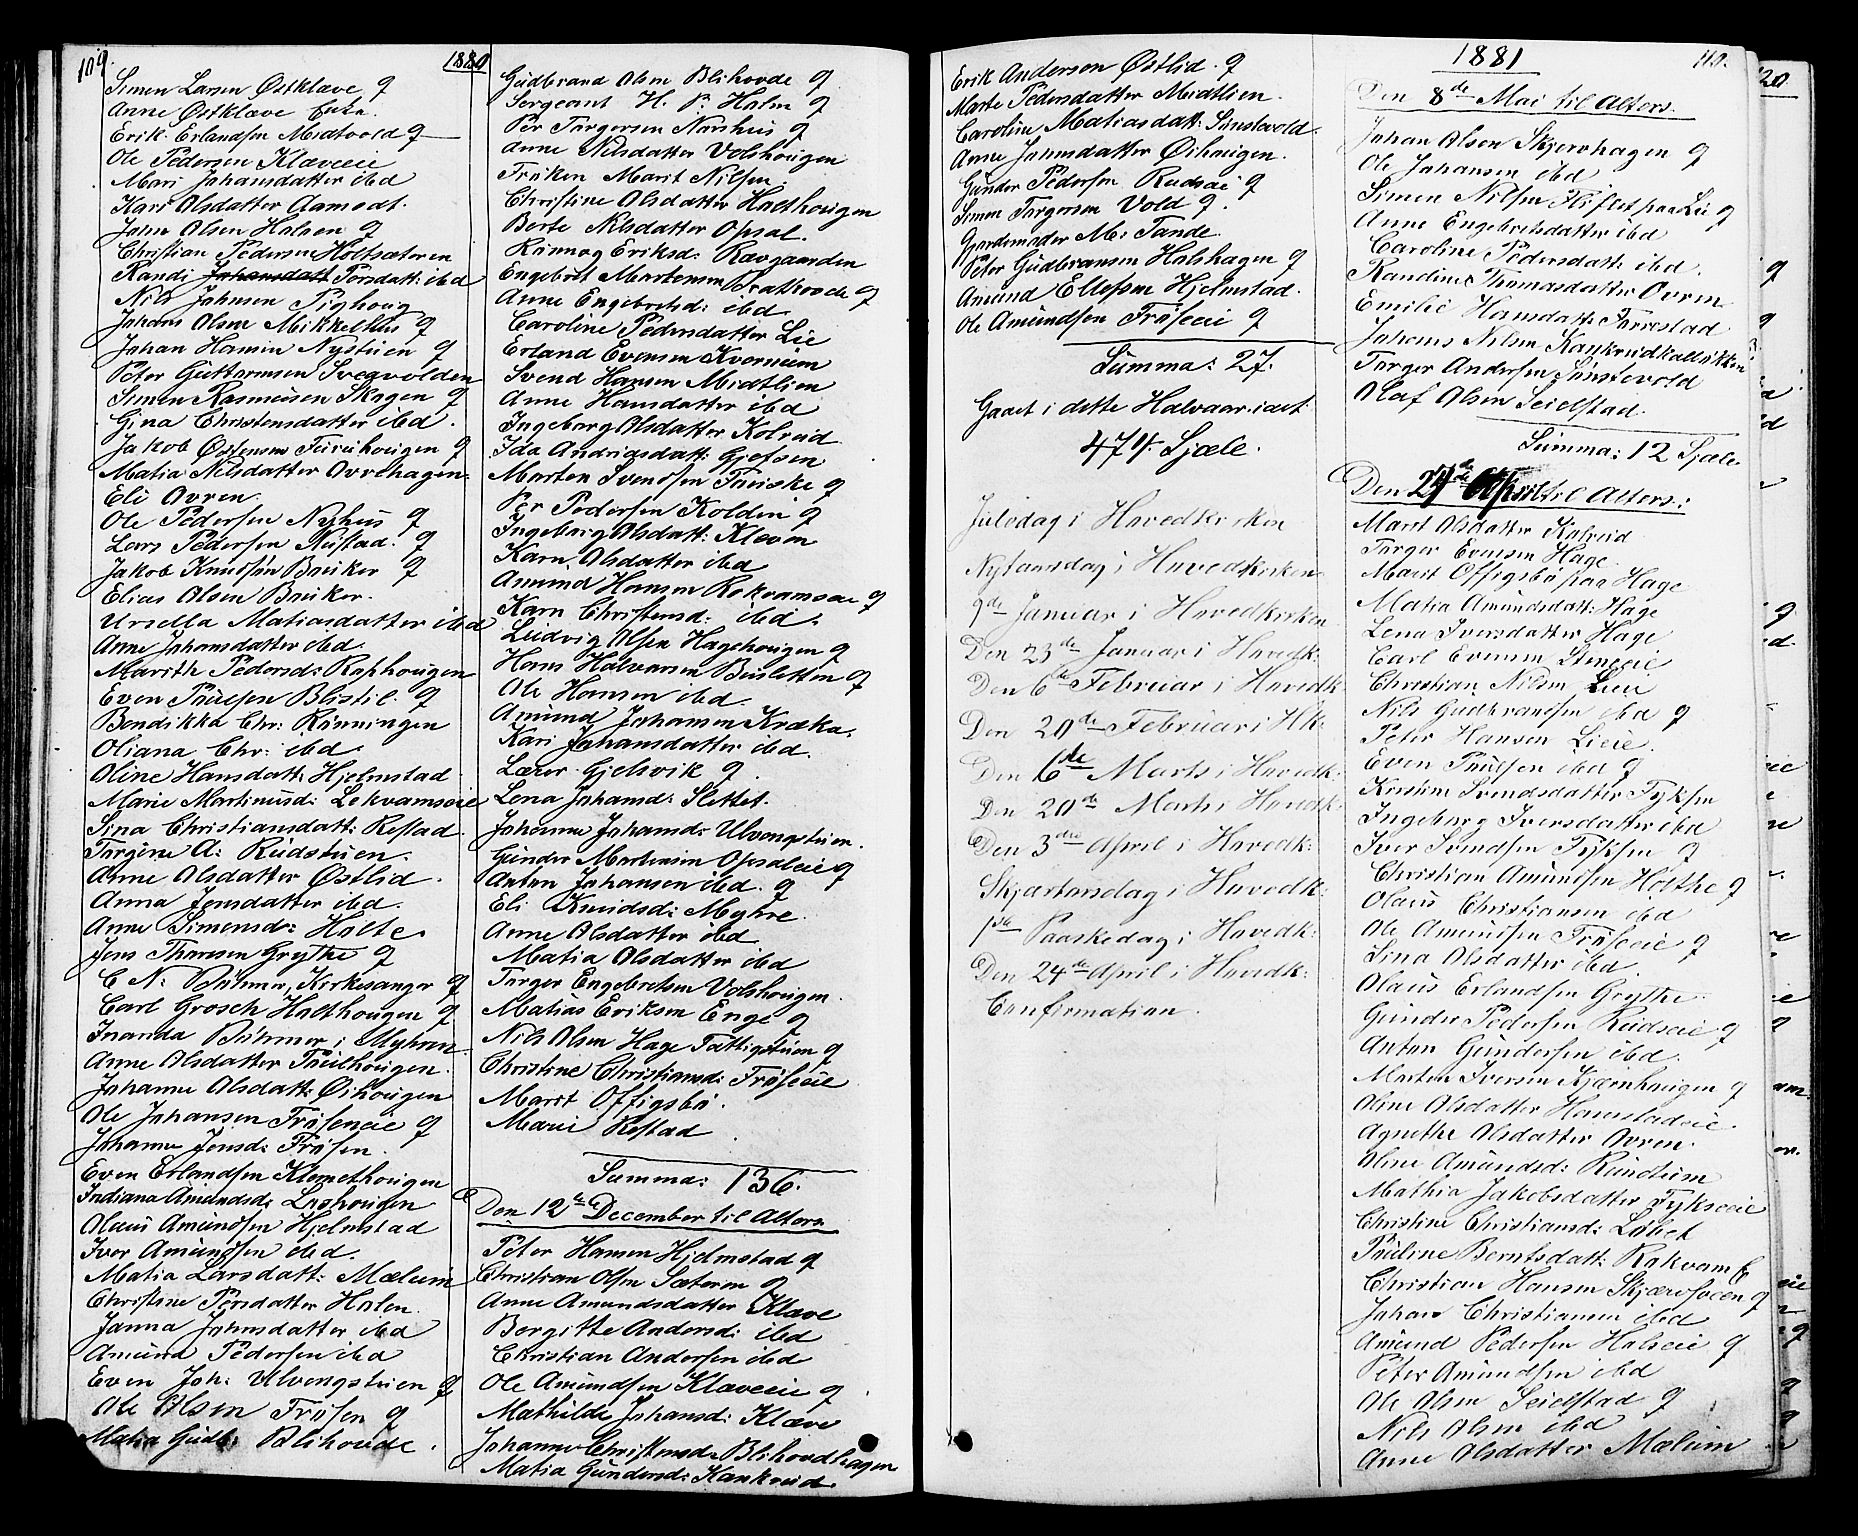 109.
1880
Simen Larsen Østklæve q
Anne Østklæve Enke.
Erik Erlandsen Midtvold q
Ole Pedersen Klæveeie
Mari Johansdatter ibd
Kari Olsdatter Aamodt.
John Olsen Halsen q
Christian Pedersen Holtsæteren
Randi Johansdatt Persdatt: ibd
Nils Johnsen Pighoug
Johans Olsen Mikkelhus q
Johan Hansen Nystuen q
Peter Guttormsen Svegvolden
Simen Rasmusen Skagen q
Gina Christensdatter ibd.
Jakob Østensen Furuhougen q
Matia Nilsdatter Ovrehagen.
Eli Ovren.
Ole Pedersen Nyhus q
Lars Pedersen Nustad. q
Jakob Knudsen Bruker q
Elias Olsen Bruker.
Ursella Matiasdatter ibd
Anne Johansdatter ibd.
Marith Pedersd: Raphougen
Even Paulsen Blistil. q
Bendikka Chr: Rønningen
Oliana Chr: ibd.
Oline Hansdatt: Hjelmstad
Marie Martinusd: Lekvamseie
Sina Christiansdatt: Restad.
Torgine A: Rudstuen.
Anne Olsdatter Østlid.
Anna Jensdatter ibd.
Anne Simensd: Holte.
Jens Thoresen Grythe q
C N: Bühmer, Kirkesanger q
Carl Grosch Halthougen q
Inanda Bühmer i Myhren.
Anne Olsdatter Paulhougen.
Johanne Olsdatt: Øihougen
Ole Johansen Frøseneie q
Johanne Jensd: Frøsen.
Even Erlandsen Klomethougen
Indiana Amundsd: Loshougen
Olaus Amundsen Hjelmstad
Iver Amundsen ibd.
Matia Larsdatt: Mælum
Christine Persdatter Holen.
Janna Johnsdatter ibd
Amund Pedersen ibd
Even Joh: Ulvengstuen q
Ole Olsen Frøsen q
Matia Gudb: Blihovde.
Gudbrand Olsen Blihovde q
Sergeant H. P. Holm q
Per Torgersen Norshus q
Anne Nilsdatter Volshougen
Frøken Marit Nilsen.
Christine Olsdatter Halthougen
Berte Nilsdatter Opsal.
Rønnog Eriksd: Ravgaarden
Engebret Martensen Brathovde q
Anne Engebretsd: ibd
Caroline Pedersdatter Lie
Erland Evensen Kvernum
Svend Hansen Midtlien
Anne Hansdatter ibd
Ingeborg Olsdatter Kolrud
Ida Andriasdatt: Gjefsen
Morten Svendsen Fauske q
Per Pedersen Kolden q
Ingeborg Olsdatt: Kleven
Karn Olsdatter ibd
Amund Hansen Rakvamseie q
Karn Christensd: ibd.
Ludvig Olsen Hagehougen q
Hans Halvorsen Busletten q
Ole Hansen ibd.
Amund Johansen Kræka.
Kari Johansdatter ibd.
Lærer Gjelsvik q
Lena Johansd: Slettet.
Johanne Johansd: Ulvengstuen.
Gunder Mortensen Opsaleie q
Anton Johansen ibd. q
Eli Knudsd: Myhre.
Anne Olsdatter ibd
Matia Olsdatter ibd
Torger Engebretsen Volshougen.
Matias Eriksen Enge q
Nils Olsen Hage Fattigstuen q
Christine Christiansd: Frøseeie
Marit Offigsbø.
Marie Restad
Summa: 136.
Den 12te December til Alters.
Peter Hansen Hjelmstad q
Christian Olsen Sæteren q
Anne Amundsdatter Klæve
Borgitte Andersd: ibd
Christian Andersen ibd
Ole Amundsen Klæveeie q
Mathilde Johansd: Klæve
Johanne Christensd: Blihovdhagen
Matia Gundersd: Kankrud.
Erik Anderson Østlid. q
Marte Pedersdatter Midtlien.
Caroline Matiasdatt: Sønstevold.
Anne Johnsdatter Øihougen.
Gunder Pedersen Rudseie q
Simen Torgersen Vold q.
Gjordemoder M: Tande.
Peter Gudbransen Halshagen q
Amund Ellefsen Hjelmstad.
Ole Amundsen Frøseeie q
Summa: 27.
Gaaet i dette Halvaar i det
474 Sjæle.
Juledag i Hovedkirken
Nytaarsdag i Hovedkirken
9de Januar i Hovedkirken
Den 23de Januar i Hovedk:
Den 6te Februar i Hovedk.
Den 20de Februar i HK.
Den 6te Marts i Hovedk:
Den 20de Marts i Hovedk.
Den 3die April i Hovedk:
Skjærtorsdag i Hovedk:
1ste Paaskedag i Hovedk:
Den 24de April i Hovedk:
Confirmation.
1881
110.
Den 8de Mai til Alters.
Johan Olsen Skjervhagen q
Ole Johansen ibd
Simen Nilsen Fliflet paa Lie q
Anne Engebretsdatter ibd
Caroline Pedersdatt: ibd.
Randine Thomasdatter Ovren
Emilie Hansdatt: Forrestad
Johans Nilsen Kankrudkalløkken
Torger Andersen Sønstevold
Olaf Olsen Seielstad.
Summa: 12 Sjæle
Den 24de April til Alters:
Marit Olsdatter Kolrud
Torger Evensen Hage
Marit Offigsbø paa Hage
Matia Amundsdatt: Hage
Lena Iversdatter Hage
Carl Evensen Steneeie
Christian Nilsen Lieie
Nils Gudbrandsen ibd q
Peter Hansen Lieie.
Even Paulsen ibd q
Kirstine Svendsdatter Fyksen
Ingeborg Iversdatter ibd
Iver Svendsen Fyksen q
Christian Amundsen Holthe q
Olaus Christiansen ibd
Ole Amundsen Frøseeie q
Sina Olsdatter ibd.
Olaus Erlandsen Grythe.
Gunder Pedersen Rudseie q
Anton Gundersen ibd.
Morten Iversen Kjærnhougen q
Oline Olsdatter Hamstadeie.
Agnethe Olsdatter Ovren.
Oline Amundsd: Rundtum
Mathia Jakobsdatter Fykseeie
Christine Christiansd: Løket
Pauline Berntsdatt: Rakvam E
Christian Hansen Skjærosveen q
Johan Christiansen ibd
Amund Pedersen Halseie q
Peter Amundsen ibd
Ole Olsen Seielstad q
Nils Olsen ibd
Anne Olsdatter Mælum
120